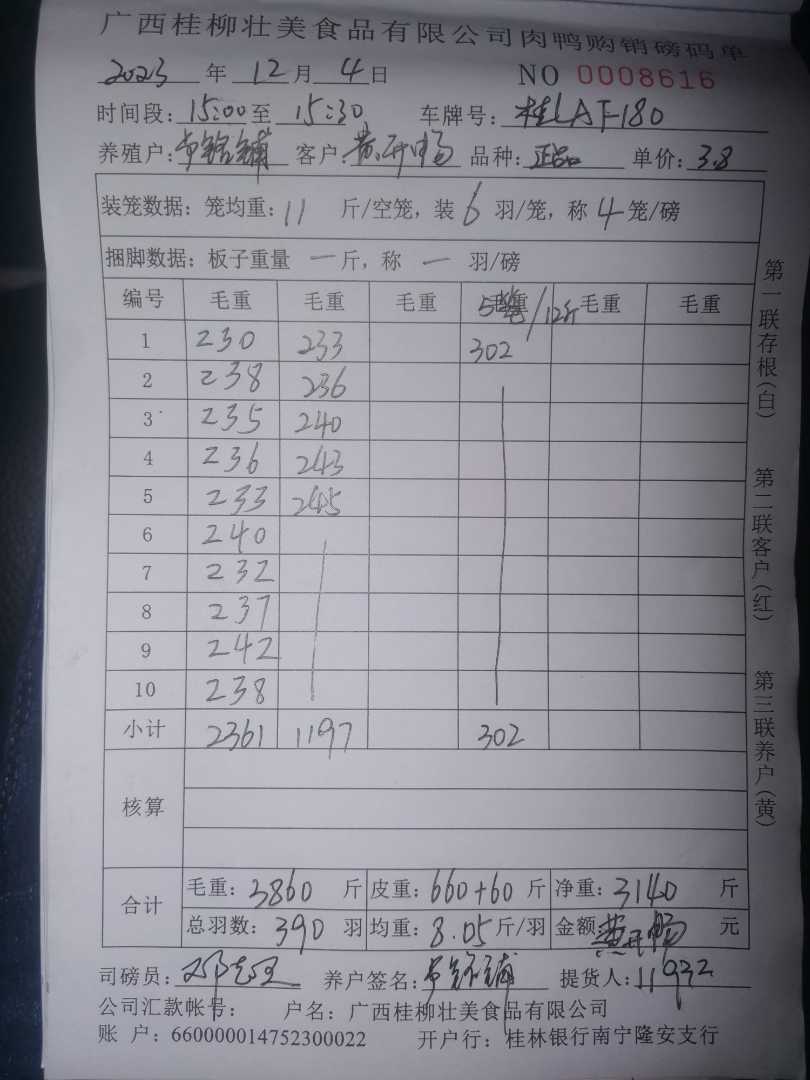 广西桂柳壮美食品有限公司肉鸭购销磅码单
2023 年 12 月 4 日 NO 0008616
时间段: 15:00 至 15:30 车牌号: 桂LAF-180
养殖户: 客户: 黄开畅 品种: 正品 单价: 3.8
装笼数据: 笼均重: 11 斤/空笼, 装 6 羽/笼, 称 4 笼/磅
捆脚数据: 板子重量 一 斤, 称 一 羽/磅
编号 毛重 毛重 毛重 毛重 5笼/12斤 毛重 毛重
1 230 233 302
2 238 236
3 235 240
4 236 243
5 233 245
6 240
7 232
8 237
9 242
10 238
小计 2361 1197 302
核算
合计 毛重: 3860 斤 皮重: 660+60 斤 净重: 3140 斤
总羽数: 390 羽 均重: 8.05 斤/羽 金额 黄开畅 元
司磅员: 养户签名: 提货人: 11932
公司汇款帐号: 户名: 广西桂柳壮美食品有限公司
账 户: 660000014752300022 开户行: 桂林银行南宁隆安支行
第一联存根(白)
第二联客户(红)
第三联养户(黄)